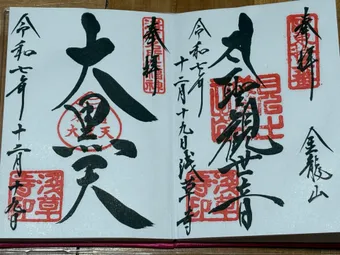 奉拝
金龍山
大聖観世音
令和七年十二月十九日浅草寺
奉拝
大黒天
大黒天
令和七年十二月十九日
浅草寺印
浅草寺印